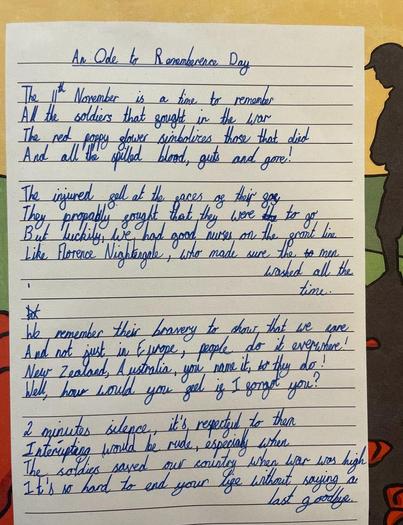 An Ode to Rememberence Day
The 11th November is a time to remember
All the soldiers that fought in the war
The red poppy flower simbolizes those that died
And all the spilled blood, guts and gore!
The injured fell at the faces of their foe
They propably fought that they were to go
But luckily, we had good nurses on the front line
Like Florence Nightengale, who made sure the men
washed all the
time.
We remember their bravery to show, that we care
And not just in Europe, people do it everywhere!
New Zealand, Australia, you name it, they do!
Well, how would you feel if I forgot you?
2 minutes silence, it's, respected to then
Interupting would be rude, especialy when
The soldies saved our country when war was high
It's so hard to end your life without saying a
last goodbye.